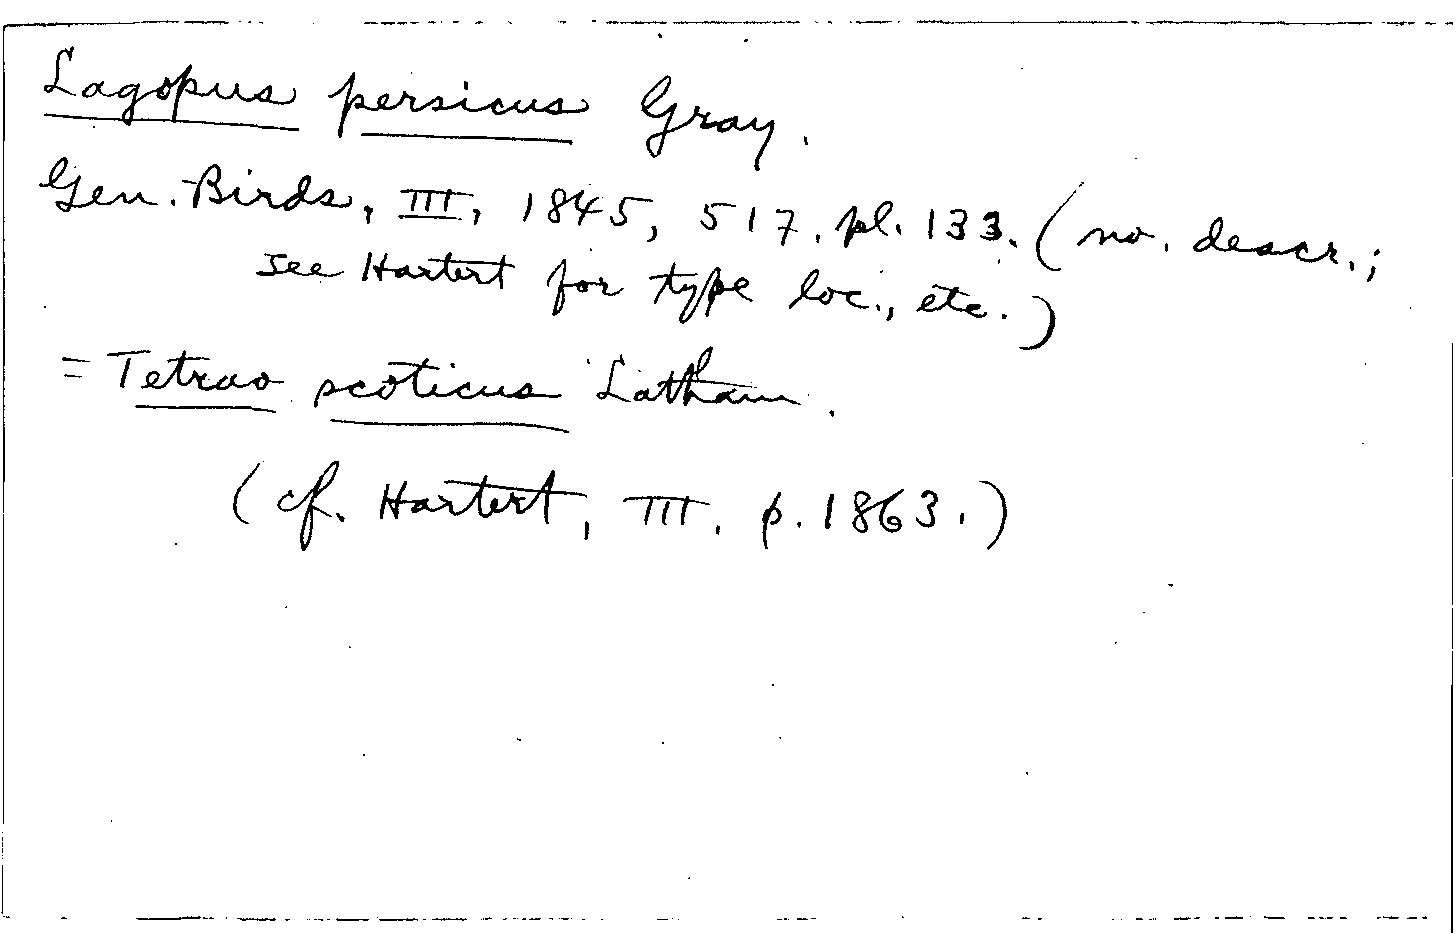 Lagopus persicus Gray.
Gen. Birds, III, 1845, 517, pl. 133. (no. descr.;
see Hartert for type loc., etc.)
= Tetrao scoticus Latham.
(cf. Hartert, III. p. 1863.)